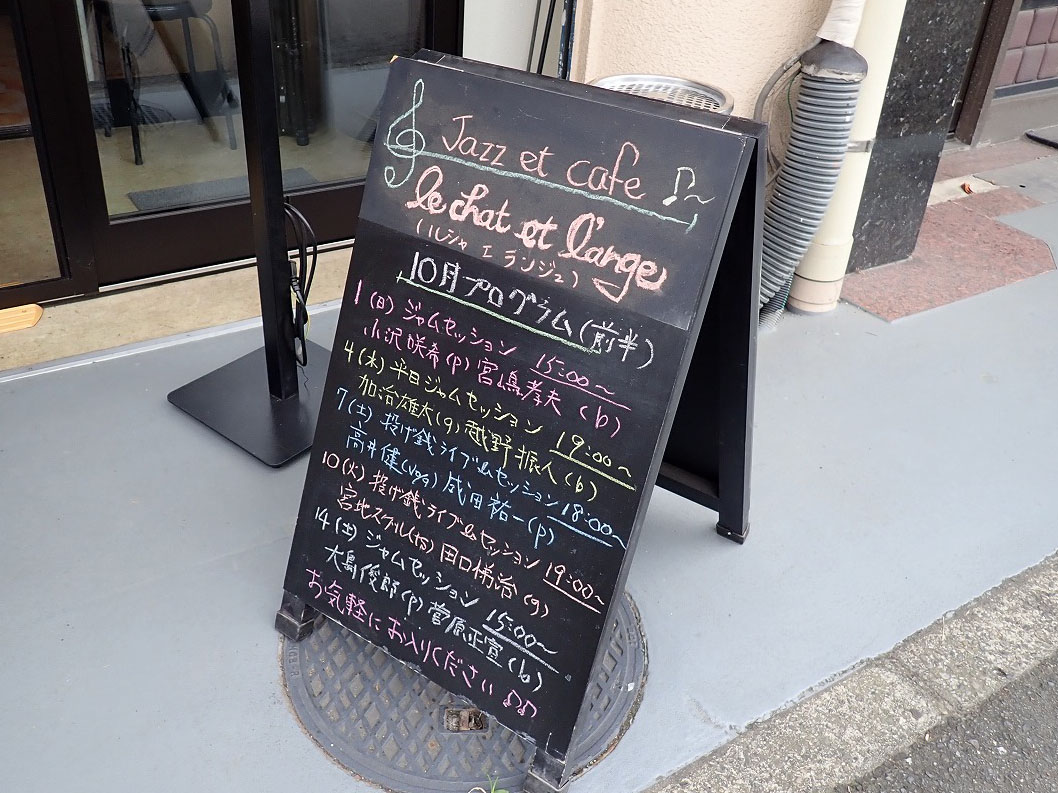 Jazz et cafe
le chat et l'ange
(ルシャ エ ランジュ)
10月プログラム(前半)
1(日) ジャムセッション 15:00〜
小沢咲希(p) 宮嶋孝夫(b)
4(水) 平日ジャムセッション 19:00〜
加治雄太(g) 越野振人(b)
7(土) 投げ銭ライブ&セッション 18:00〜
高井健(vo,g) 成田祐一(p)
10(火) 投げ銭ライブ&セッション 19:00〜
宮地スグル(ts) 田口悌治(g)
14(土) ジャムセッション 15:00〜
大島俊郎(p) 菅原正宣(b)
お気軽にお入りください